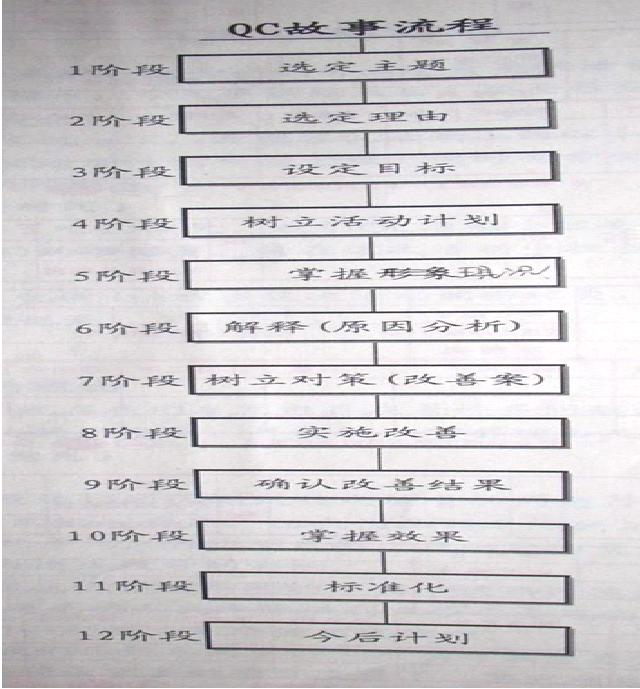 QC故事流程
1阶段 选定主题
2阶段 选定理由
3阶段 设定目标
4阶段 树立活动计划
5阶段 掌握形象现况
6阶段 解释(原因分析)
7阶段 树立对策(改善案)
8阶段 实施改善
9阶段 确认改善结果
10阶段 掌握效果
11阶段 标准化
12阶段 今后计划